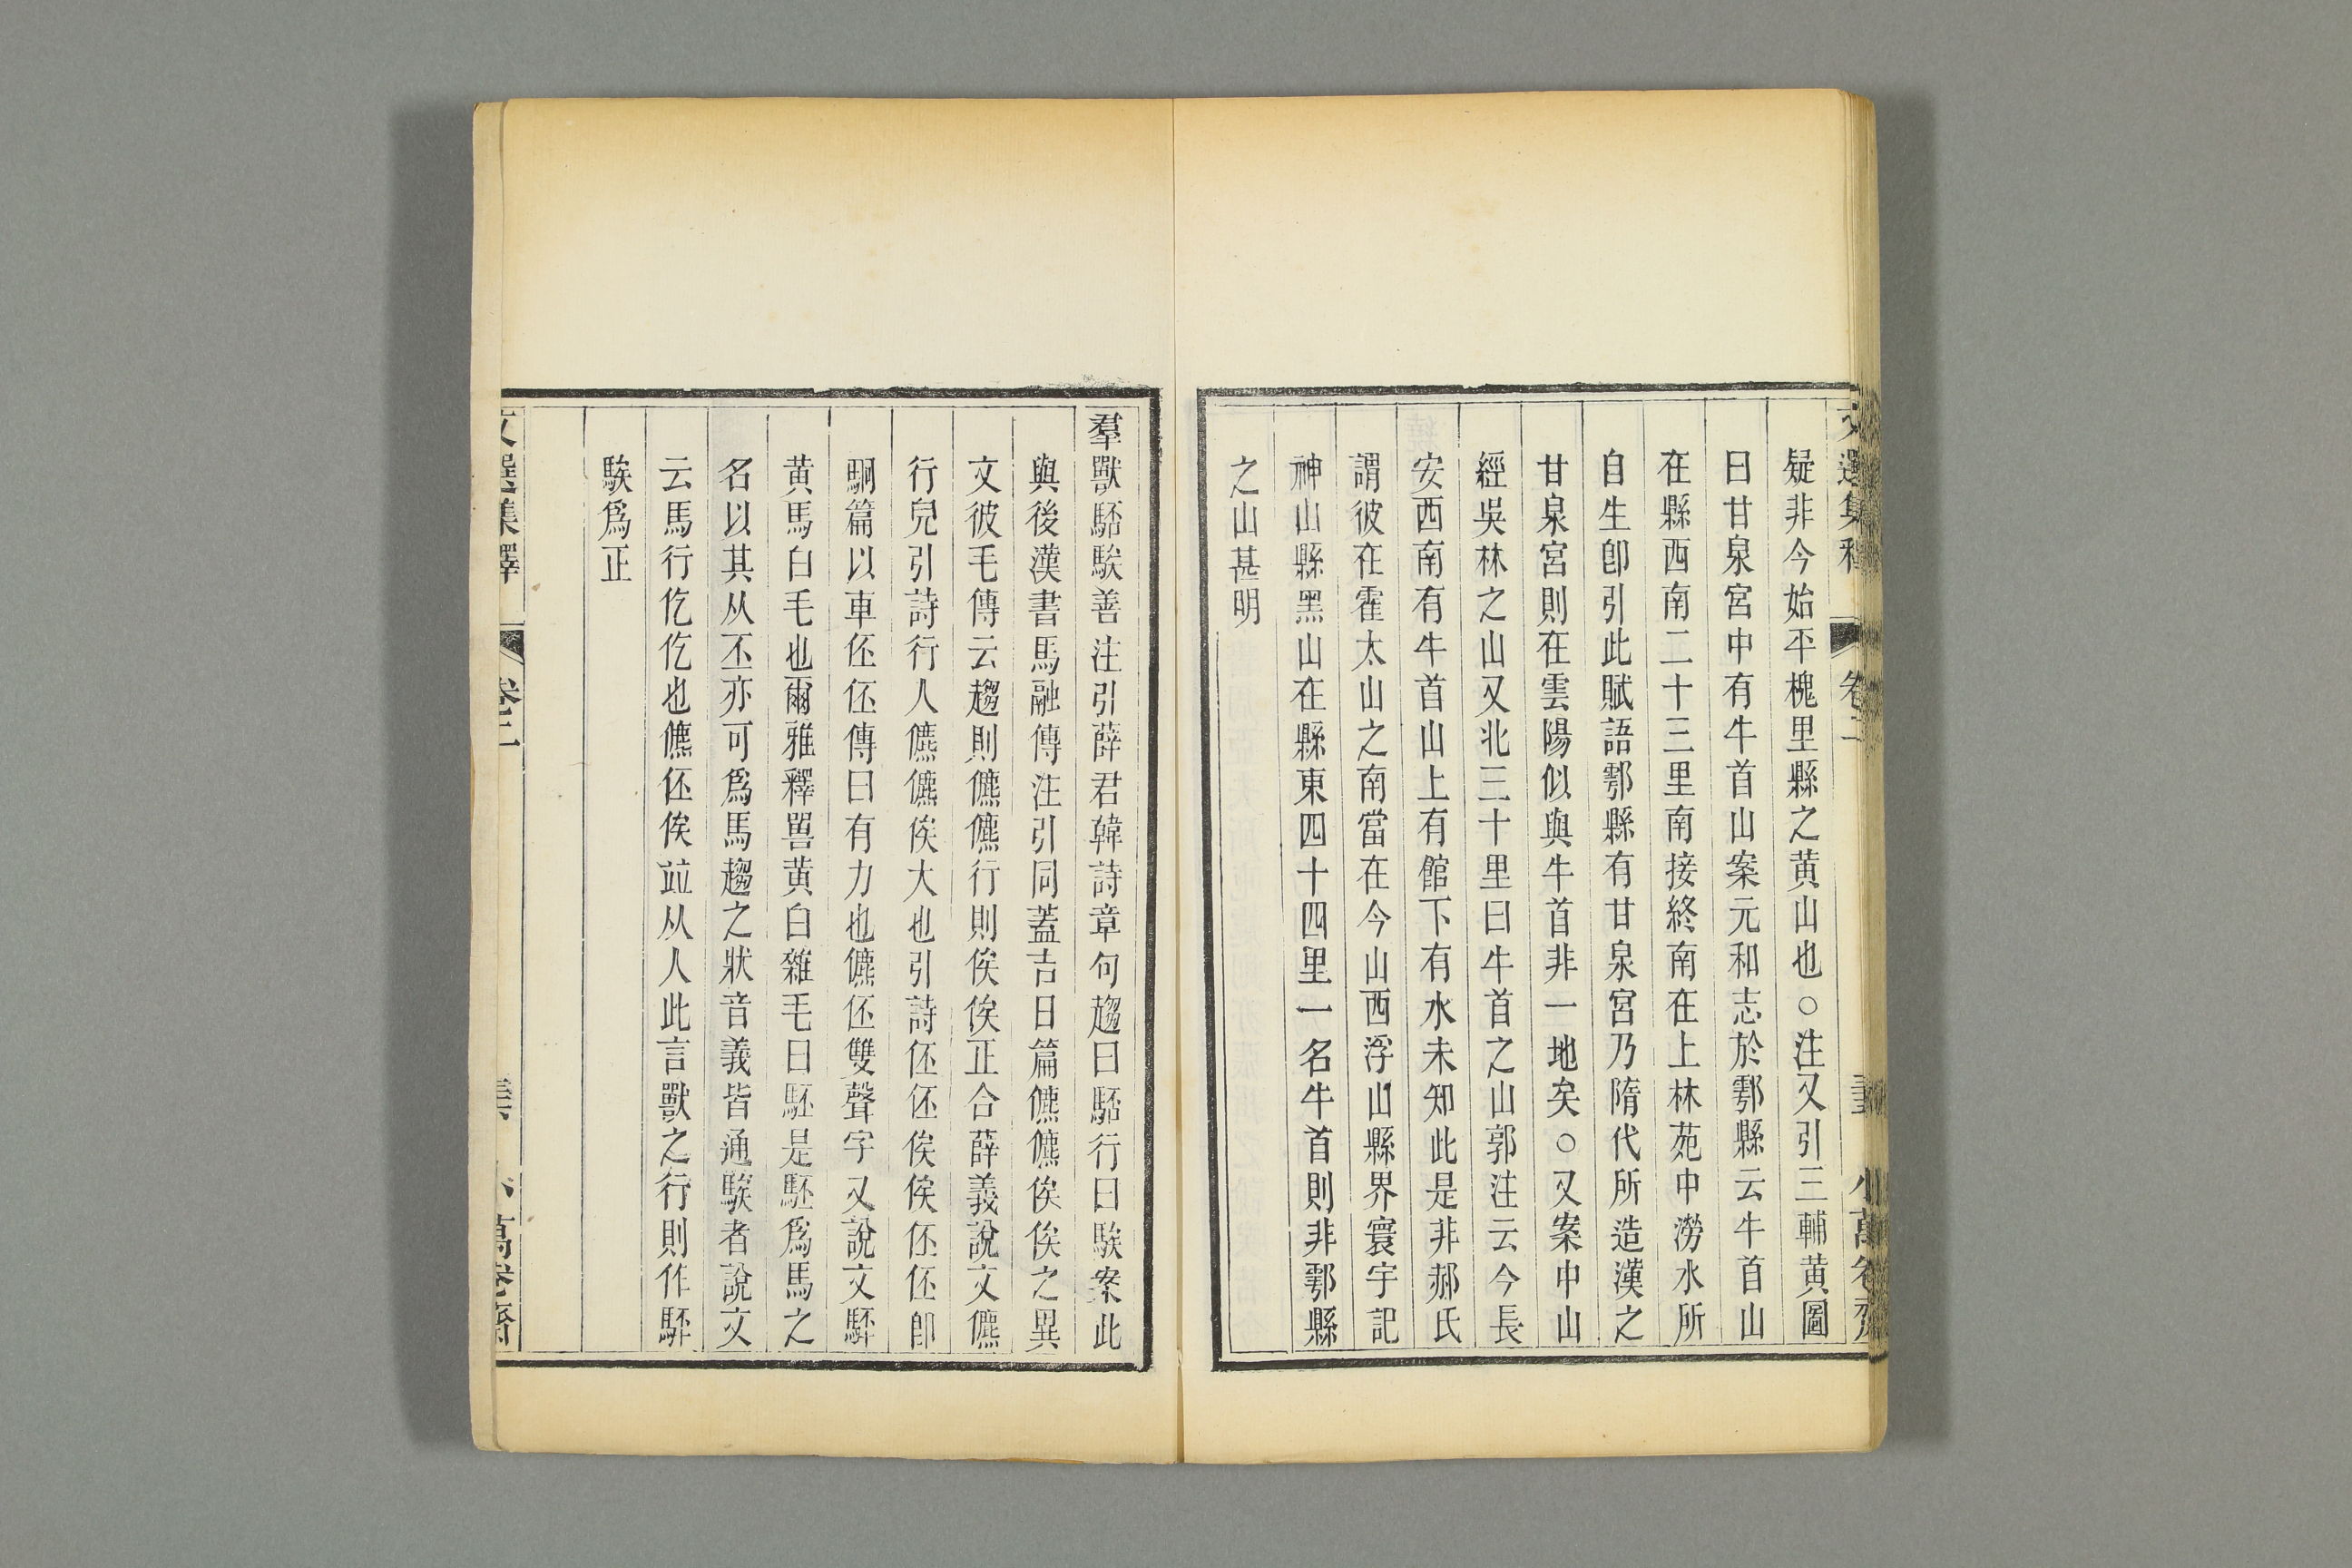 疑非今始平槐里縣之黄山也○注又引三輔黄圖
曰甘泉宮中有牛首山案元和志於鄠縣云牛首山
在縣西南二十三里南接終南在上林苑中澇水所
自生卽引此賦語鄠縣有甘泉宮乃隋代所造漢之
甘泉宮則在雲陽似與牛首非一地矣○又案中山
經吳林之山又北三十里曰牛首之山郭注云今長
安西南有牛首山上有館下有水未知此是非郝氏
謂彼在霍太山之南當在今山西浮山縣界寰宇記
神山縣黑山在縣東四十四里一名牛首則非鄠縣
之山甚明
羣獸駓騃善注引薛君韓詩章句趨曰駓行曰騃案此
與後漢書馬融傳注引同蓋吉日篇儦儦俟俟之異
文彼毛傳云趨則儦儦行則俟俟正合薛義說文儦
行皃引詩行人儦儦俟大也引詩伾伾俟俟伾伾卽
駉篇以車伾伾傳曰有力也儦伾雙聲字又說文駓
黄馬白毛也爾雅釋嘼黄白雜毛曰駓是駓爲馬之
名以其从丕亦可爲馬趨之狀音義皆通騃者說文
云馬行仡仡也儦伾俟竝从人此言獸之行則作駓
騃爲正
文選集釋
卷二
小萬卷齋